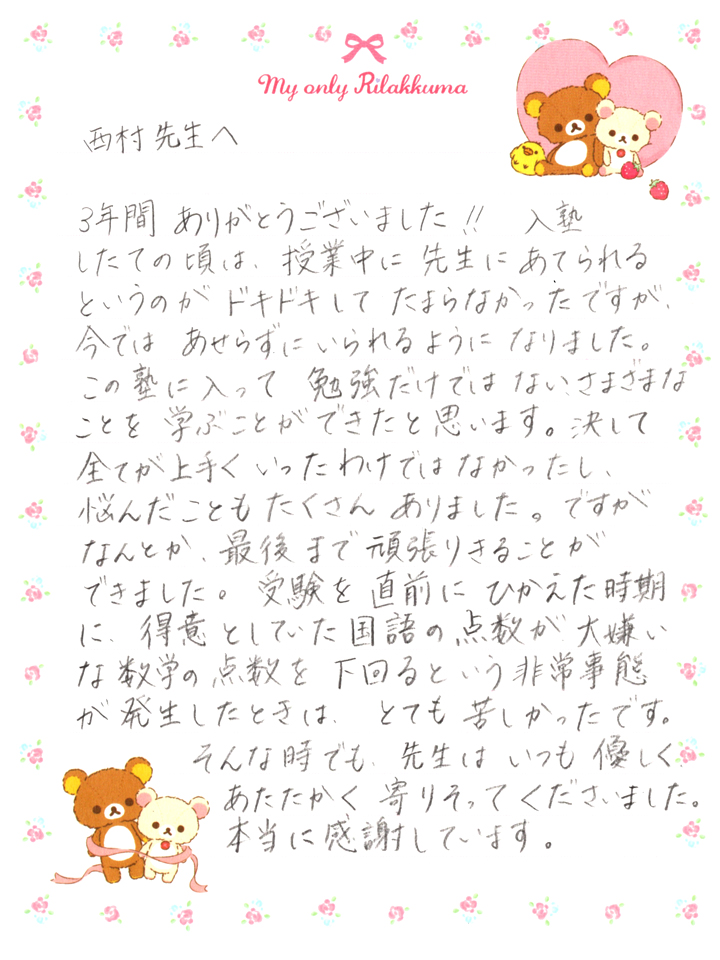 My only Rilakkuma
西村先生へ
3年間 ありがとうございました!! 入塾
したての頃は、授業中に先生にあてられる
というのがドキドキしてたまらなかったですが、
今ではあせらずにいられるようになりました。
この塾に入って 勉強だけではない、さまざまな
ことを学ぶことができたと思います。決して
全てが上手くいったわけではなかったし、
悩んだこともたくさんありました。ですが
なんとか、最後まで頑張りきることが
できました。受験を直前にひかえた時期
に、得意としていた国語の点数が大嫌い
な数学の点数を下回るという非常事態
が発生したときは、とても苦しかったです。
そんな時でも、先生はいつも優しく、
あたたかく寄りそってくださいました。
本当に感謝しています。